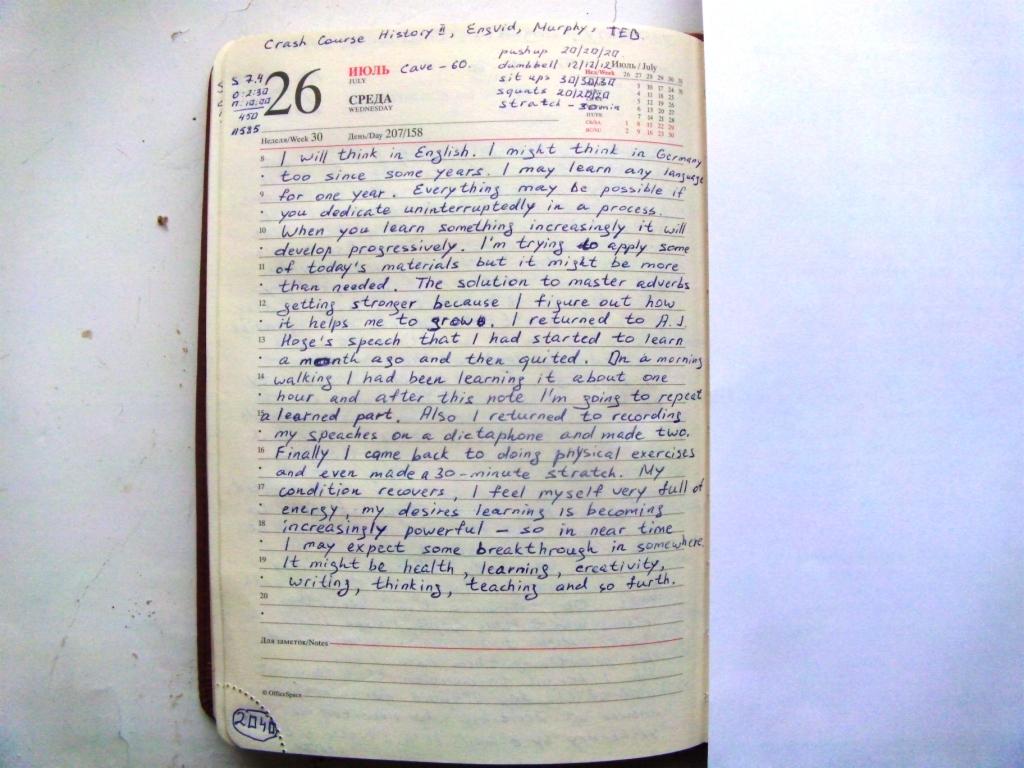 Crash Course History II, Engvid, Murphy, TED
pushup 20/20/20
dumbbell 12/12/12
sit ups 30/30/30
squats 20/20/20
stretch - 30 min
S 7.4
0:2:30
450
11585
26
ИЮЛЬ
JULY
Cave - 60.
СРЕДА
WEDNESDAY
Июль / July
Нед/Week 26 27 28 29 30 31
3 10 17 24 31
4 11 18 25
5 12 19 26
6 13 20 27
7 14 21 28
1 8 15 22 29
2 9 16 23 30
Неделя/Week 30 День/Day 207/158
8 I will think in English. I might think in Germany
too since some years. I may learn any language
9 for one year. Everything may be possible if
you dedicate uninterruptedly in a process.
10 When you learn something increasingly it will
develop progressively. I'm trying to apply some
11 of today's materials but it might be more
than needed. The solution to master adverbs
12 getting stronger because I figure out how
it helps me to grow. I returned to A.J
13 Hoge's speach that I had started to learn
a month ago and then quited. On a morning
14 walking I had been learning it about one
hour and after this note I'm going to repeat
15 a learned part. Also I returned to recording
my speaches on a dictaphone and made two.
16 Finally I came back to doing physical exercises
and even made a 30-minute stratch. My
17 condition recovers, I feel myself very full of
energy, my desires learning is becoming
18 increasingly powerful - so in near time
I may expect some breakthrough in somewhere.
19 It might be health, learning, creativity,
writing, thinking, teaching and so furth.
20
Для заметок/Notes
© OfficeSpace
2040